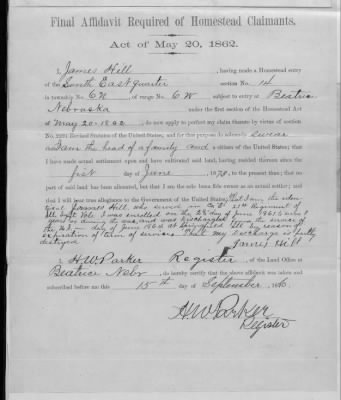 Final Affidavit Required of Homestead Claimants.
Act of May 20, 1862.
I, James Hill, having made a Homestead entry
of the South East quarter section No. 14
in township No. 6 N of range No. 6 W subject to entry at Beatrice
Nebraska under the first section of the Homestead Act
of May 20 1862, do now apply to perfect my claim thereto by virtue of section
No. 2291 Revised Statutes of the United States; and for that purpose do solemnly swear
that I am the head of a family and a citizen of the United States; that
I have made actual settlement upon and have cultivated said land, having resided thereon since the
first day of June 187, to the present time; that no
part of said land has been alienated, but that I am the sole bona fide owner as an actual settler; and
that I will bear true allegiance to the Government of the United States; that I am the iden
tical James Hill who served in 21st Regiment of
Ill Vols I was enrolled on the day of June 1861
during the war, and was discharged from the service of
the U.S. on day of 1864 at Ill by reason of
expiration of term of service. That my discharge is
destroyed
James Hill
I, H.W. Parker Register, of the Land Office at
Beatrice Nebr, do hereby certify that the above affidavit was taken and
subscribed before me this 15th day of September, 1876.
H.W. Parker
Register